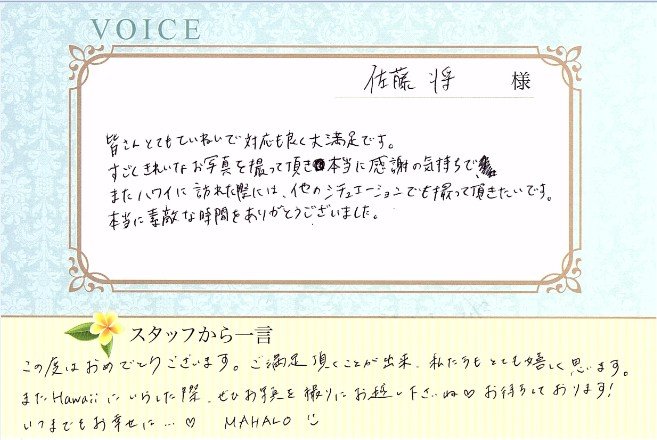 VOICE
佐藤 将 様
皆さんとてもていねいで対応も良く大満足です。
すごくきれいなお写真を撮って頂き本当に感謝の気持ちで
またハワイに訪れた際には、他のシチュエーションでも撮って頂きたいです。
本当に素敵な時間をありがとうございました。
スタッフから一言
この度はおめでとうございます。ご満足頂くことが出来、私たちもとても嬉しく思います。
またHawaiiにいらした際、ぜひお写真を撮りにお越し下さいね♡お待ちしております!
いつまでもお幸せに…♡ MAHALO